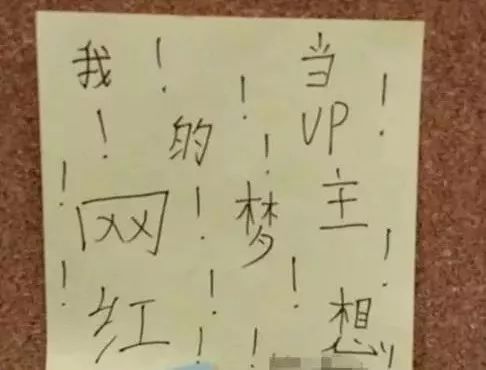 我！！当！
！的！UP
！网！梦主！
！红！！！！想